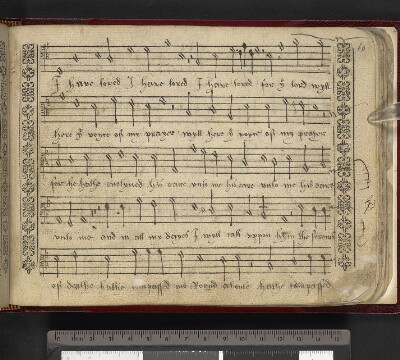 I have loved I have loved I have loved for yͤ lord wyll
here yͤ voyce off my prayer wyll here yͤ voyce off my prayer
for he hathe enclyned his eare unto me his eare unto me his eare
unto me and in all my dayes I wyll call uppon him the snares
off deathe hathe compassed me Rownd aboute hathe compassed